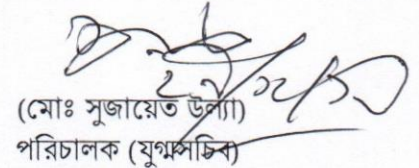 (মোঃ সুজায়েত উল্যা)
পরিচালক (যুগ্মসচিব)